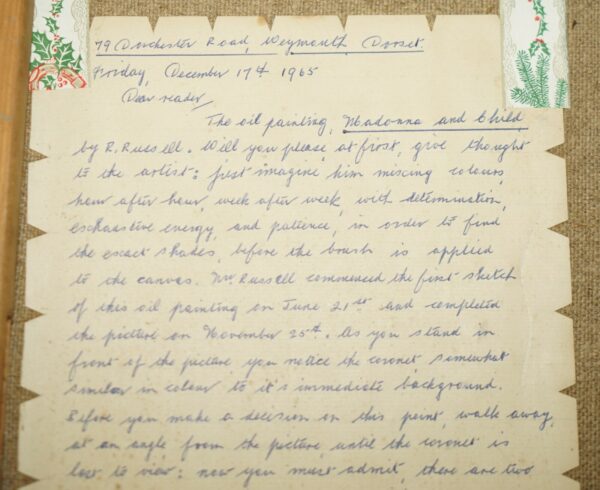 79 Dorchester Road, Weymouth, Dorset.
Friday, December 17th 1965
Dear reader,
The oil painting, Madonna and Child
by R. Russell. Will you please, at first, give thought
to the artist: just imagine him mixing colours,
hour after hour, week after week, with determination,
exhaustive energy, and patience, in order to find
the exact shades, before the brush is applied
to the canvas. Mr. Russell commenced the first sketch
of this oil painting on June 21st and completed
the picture on November 25th. As you stand in
front of the picture you notice the coronet somewhat
similar in colour to it's immediate background.
Before you make a decision on this point, walk away,
at an angle from the picture until the coronet is
lost to view: now you must admit, there are two